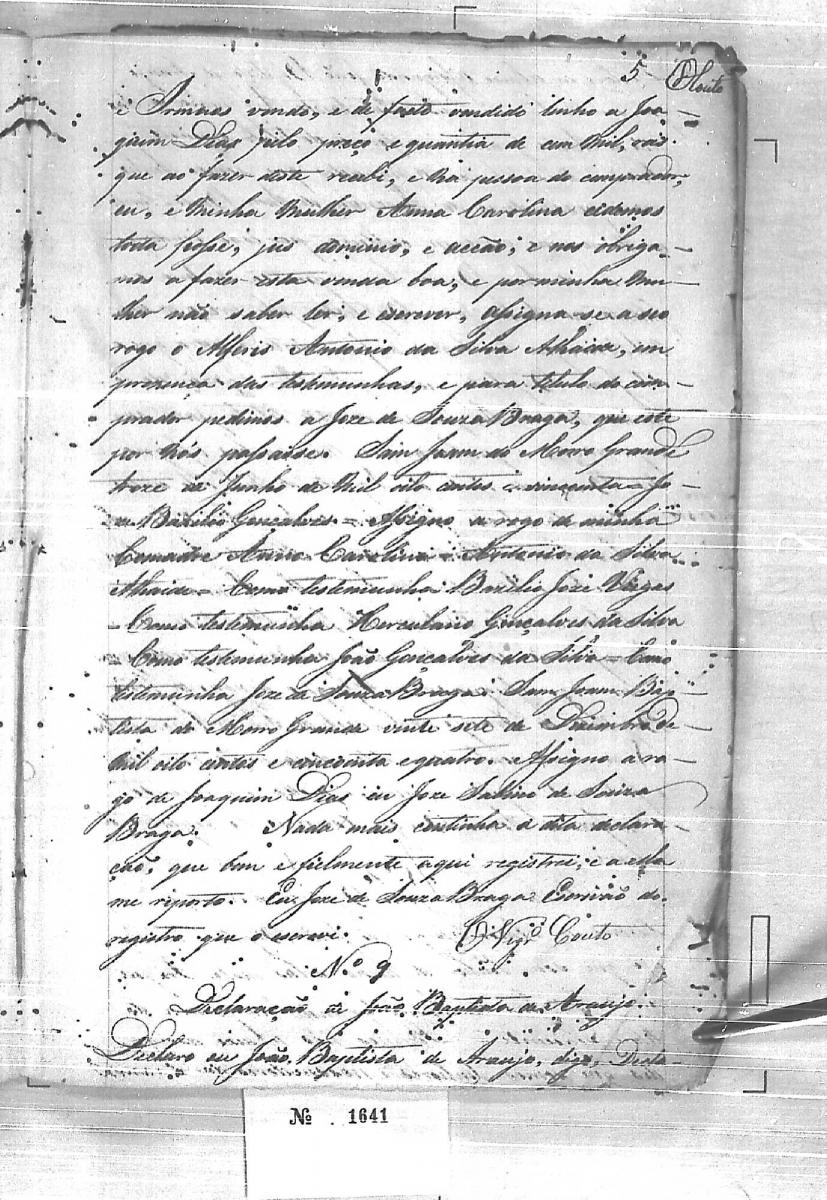 5 Couto
e Irmaas vendo, e de facto vendido tenho a Joa-
quim Dias pelo preço e quantia de cem mil reis.
que ao fazer deste recebi, e na pessoa do comprador,
eu, e minha mulher Anna Carolina cedemos
toda posse, jus dominio, e acção; e nos obriga-
mos a fazer esta venda boa, e por minha mu-
lher não saber ler, e escrever, assigna-se a seo
rogo o Alferis Antonio da Silva Athaide, em
presença das testemunhas, e para titulo do com-
prador pedimos a Joze de Souza Braga, que este
por nós passasse. Sam Joam do Morro Grande
treze de Junho de mil oito centos e sincoenta = Jo-
ze Bazilio Gonçalves = Assigno a rogo de minha
Comadre Anna Carolina = Antonio da Silva
Athaide = Como testemunha Bazilio Joze Viegas
= Como testemunha Herculano Gonçalves da Silva
= Como testemunha João Gonçalves da Silva = Como
testemunha Joze de Souza Braga. Sam Joam Bap-
tista do Morro Grande vinte sete de Dezembro de
mil oito centos e cincoenta e quatro. Assigno a ro-
go de Joaquim Dias eu Joze Sabino de Souza
Braga. Nada mais continha a dita declara-
ção, que bem e fielmente aqui registrei, e a ella
me riporto. Eu Joze de Souza Braga Escrivão do
registro que o escrevi. O Vigrº Couto
N.o 9
Declaração de João Baptista de Araujo.
Declaro eu João Baptista de Araujo, digo, Decla-
№ 1641